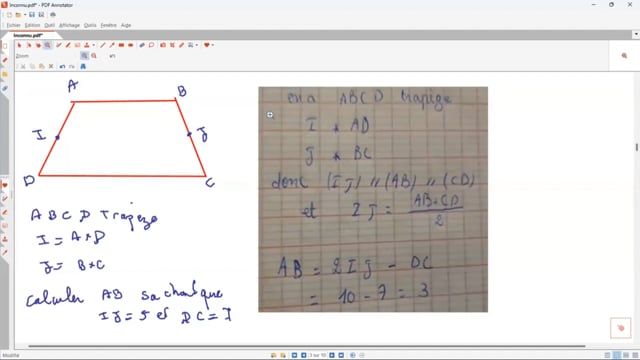 Inconnu.pdf* - PDF Annotator
Fichier Edition Outil Affichage Outils Fenetre Aide
Inconnu.pdf*
Zoom
A
B
I
J
D
C
ABCD trapèze
I = A*D
J = B*C
Calculer AB sachant que
IJ = 5 et DC = 7
on a ABCD trapèze
I * AD
J * BC
donc (IJ) // (AB) // (CD)
et IJ = AB+CD
2
AB = 2IJ - DC
= 10 - 7 = 3